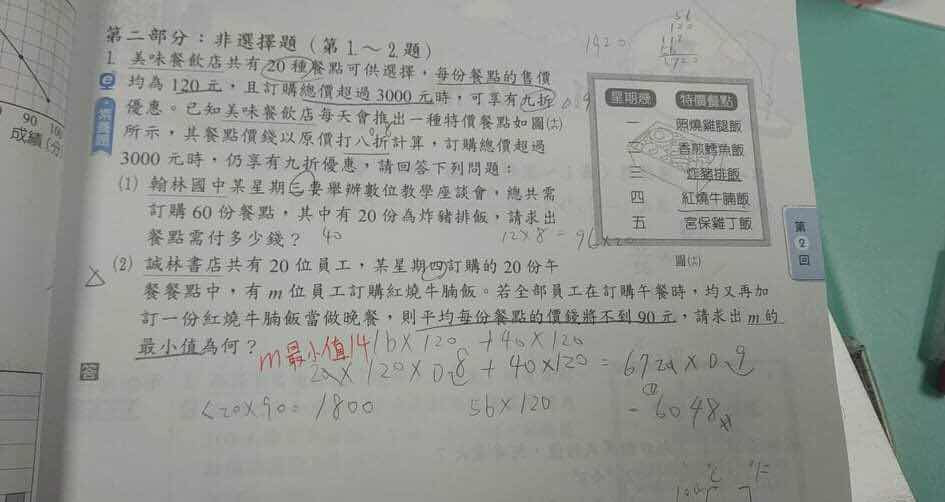 第二部分：非選擇題（第1～2題）
1. 美味餐飲店共有20種餐點可供選擇，每份餐點的售價
均為120元，且訂購總價超過3000元時，可享有九折
優惠。已知美味餐飲店每天會推出一種特價餐點如圖㈥
所示，其餐點價錢以原價打八折計算，訂購總價超過
3000元時，仍享有九折優惠，請回答下列問題：
(1) 翰林國中某星期三要舉辦數位教學座談會，總共需
訂購60份餐點，其中有20份為炸豬排飯，請求出
餐點需付多少錢？ 40
12×8=96×20
(2) 誠林書店共有20位員工，某星期四訂購的20份午
餐餐點中，有m位員工訂購紅燒牛腩飯。若全部員工在訂購午餐時，均又再加
訂一份紅燒牛腩飯當做晚餐，則平均每份餐點的價錢將不到90元，請求出m的
最小值為何？ m最小值14 16×120 +40×120
20×120×0.8+40×120=6720×0.9
<20×90=1800 56×120 =6048
答
星期幾 特價餐點
一 照燒雞腿飯
二 香煎鱈魚飯
三 炸豬排飯
四 紅燒牛腩飯
五 宮保雞丁飯
圖㈥
第2回
e
素養題
90 100
成績(分)
1920
56
120
112
56
6720
℃ ℉